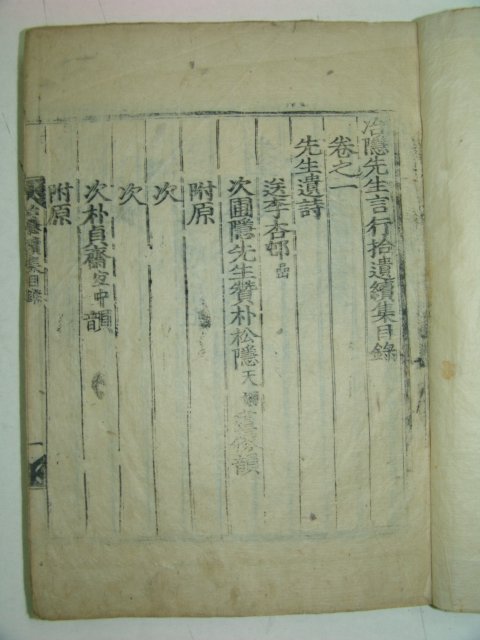 冶隱先生言行拾遺續集目錄
卷之一
先生遺詩
送李杏邨嵒
次圃隱先生贊朴松隱天翊韻
附原
次
次
次朴貞齋宜中韻
附原
續集目錄
一